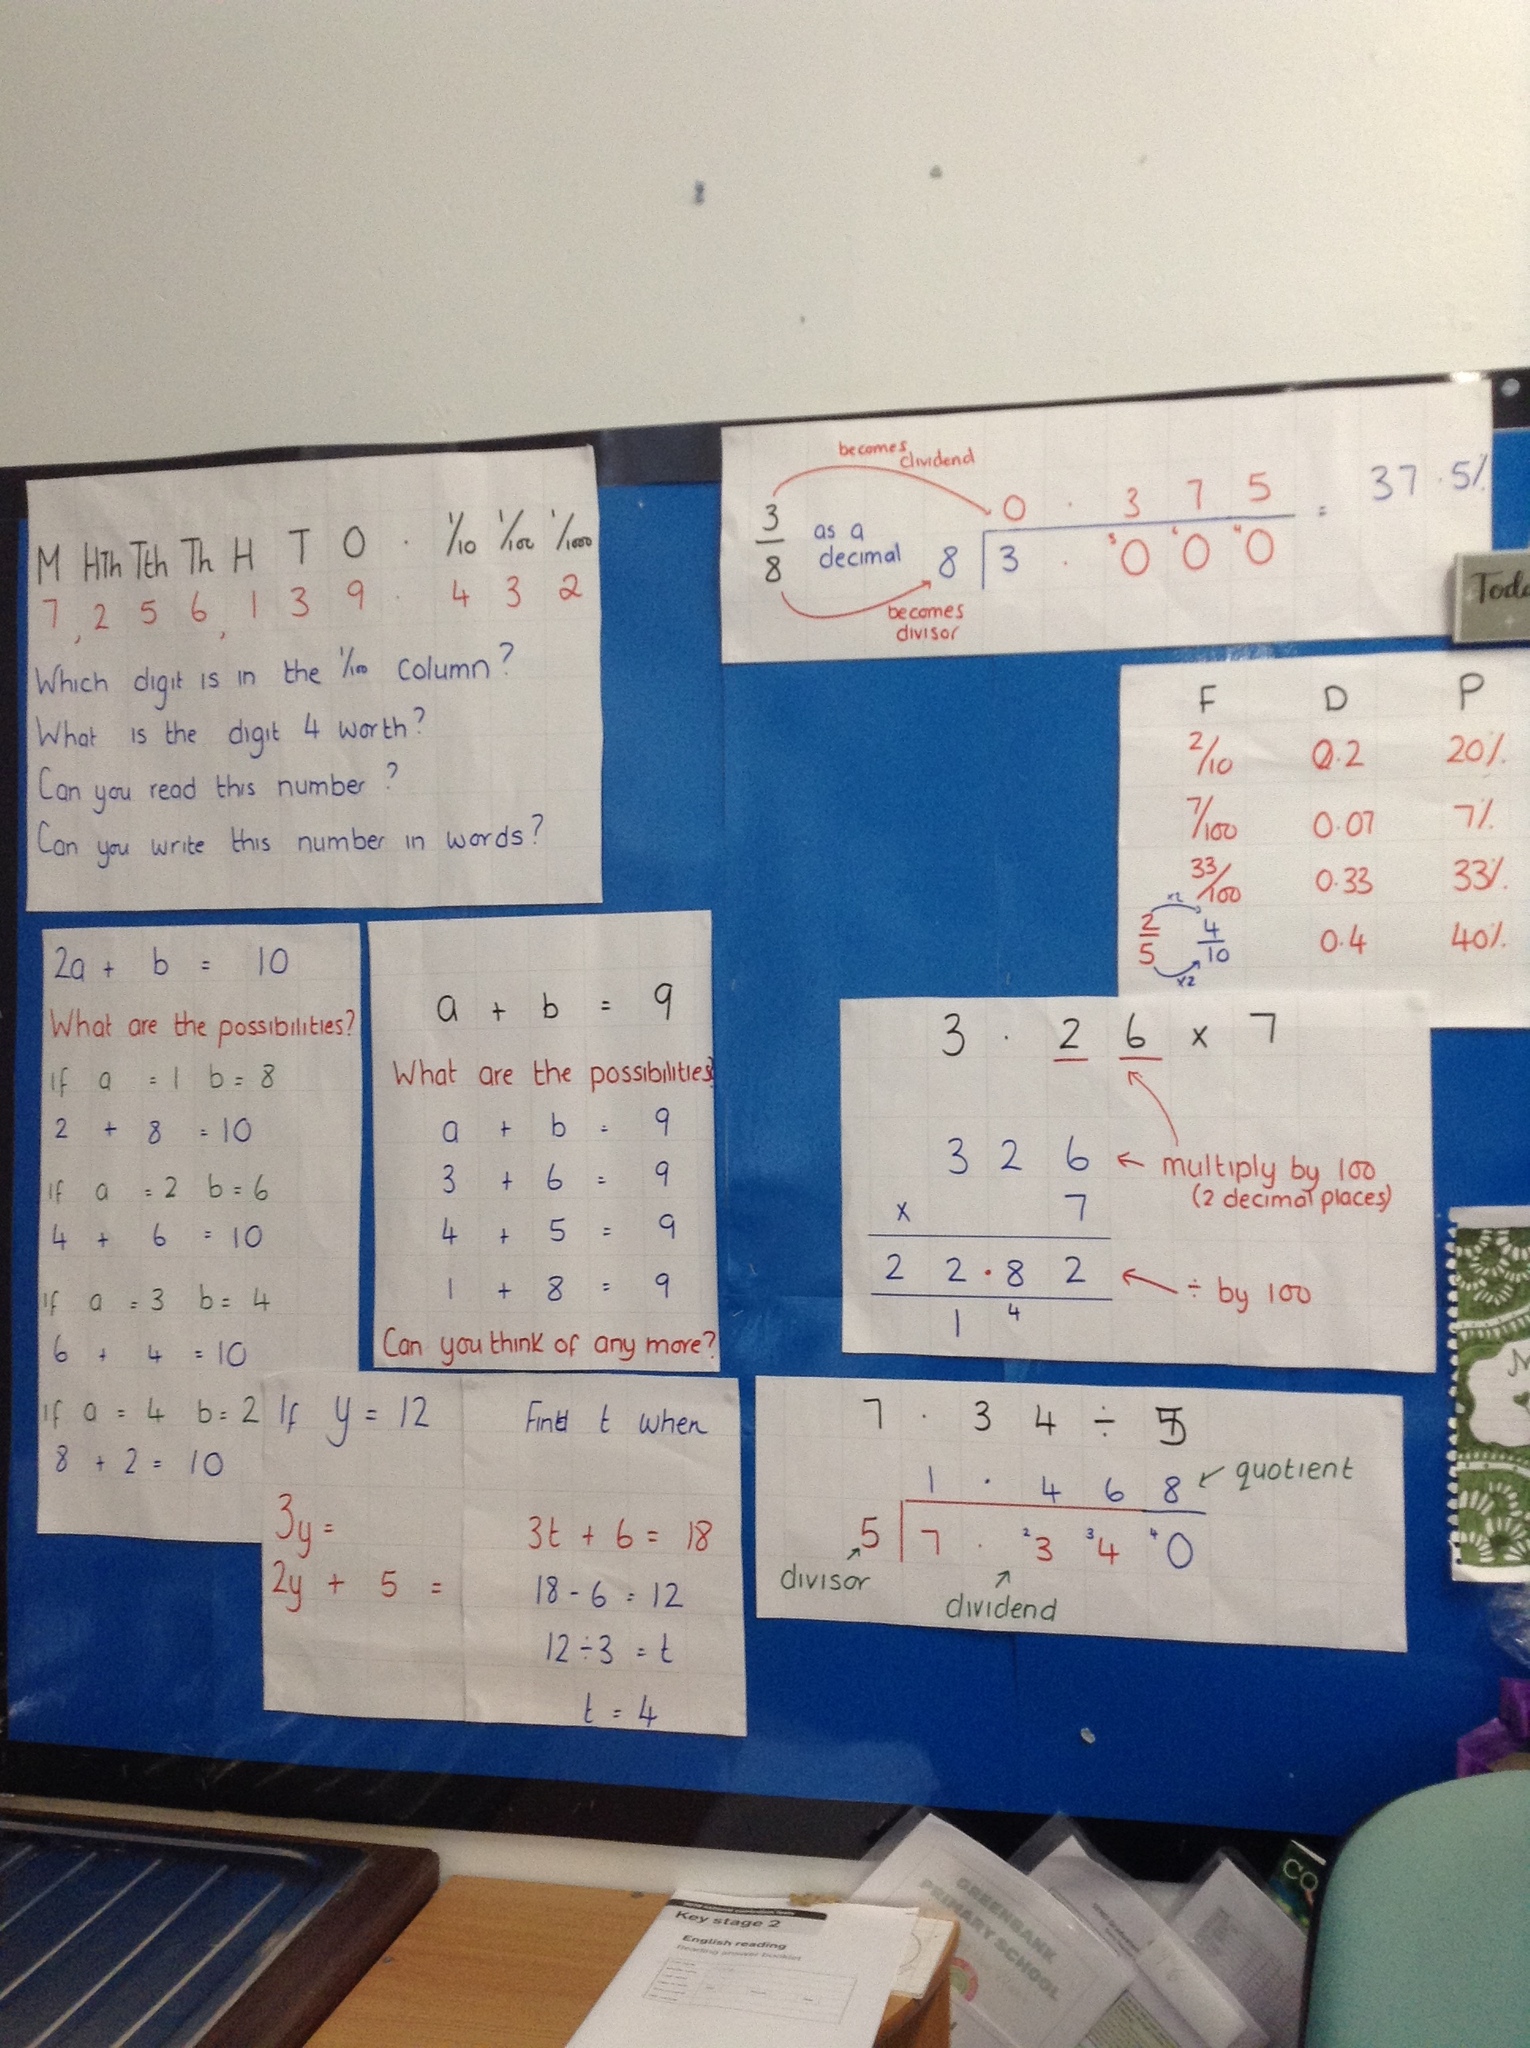 M HTh TTh Th H T O . 1/10 1/100 1/1000
7,2 5 6,1 3 9 . 4 3 2
Which digit is in the 1/100 column?
What is the digit 4 worth?
Can you read this number?
Can you write this number in words?
becomes dividend
3/8 as a decimal
0 . 3 7 5 = 37.5%
8 3 . ³0 ⁶0 ⁴0
becomes divisor
Toda
F D P
2/10 0.2 20%
7/100 0.07 7%
33/100 0.33 33%
x2
2/5 4/10 0.4 40%
x2
2a + b = 10
What are the possibilities?
If a = 1 b = 8
2 + 8 = 10
If a = 2 b = 6
4 + 6 = 10
If a = 3 b = 4
6 + 4 = 10
If a = 4 b = 2
8 + 2 = 10
a + b = 9
What are the possibilities?
a + b = 9
3 + 6 = 9
4 + 5 = 9
1 + 8 = 9
Can you think of any more?
3 . 2 6 x 7
3 2 6 ← multiply by 100
(2 decimal places)
x 7
2 2 . 8 2 ← ÷ by 100
1 4
If y = 12
3y =
2y + 5 =
Find t when
3t + 6 = 18
18 - 6 = 12
12 ÷ 3 = t
t = 4
7 . 3 4 ÷ 5
1 . 4 6 8 ← quotient
5 7 . ²3 ³4 ⁴0
divisor
dividend
Key stage 2
English reading
Reading answer booklet
GREENBANK
PRIMARY SCHOOL
CO